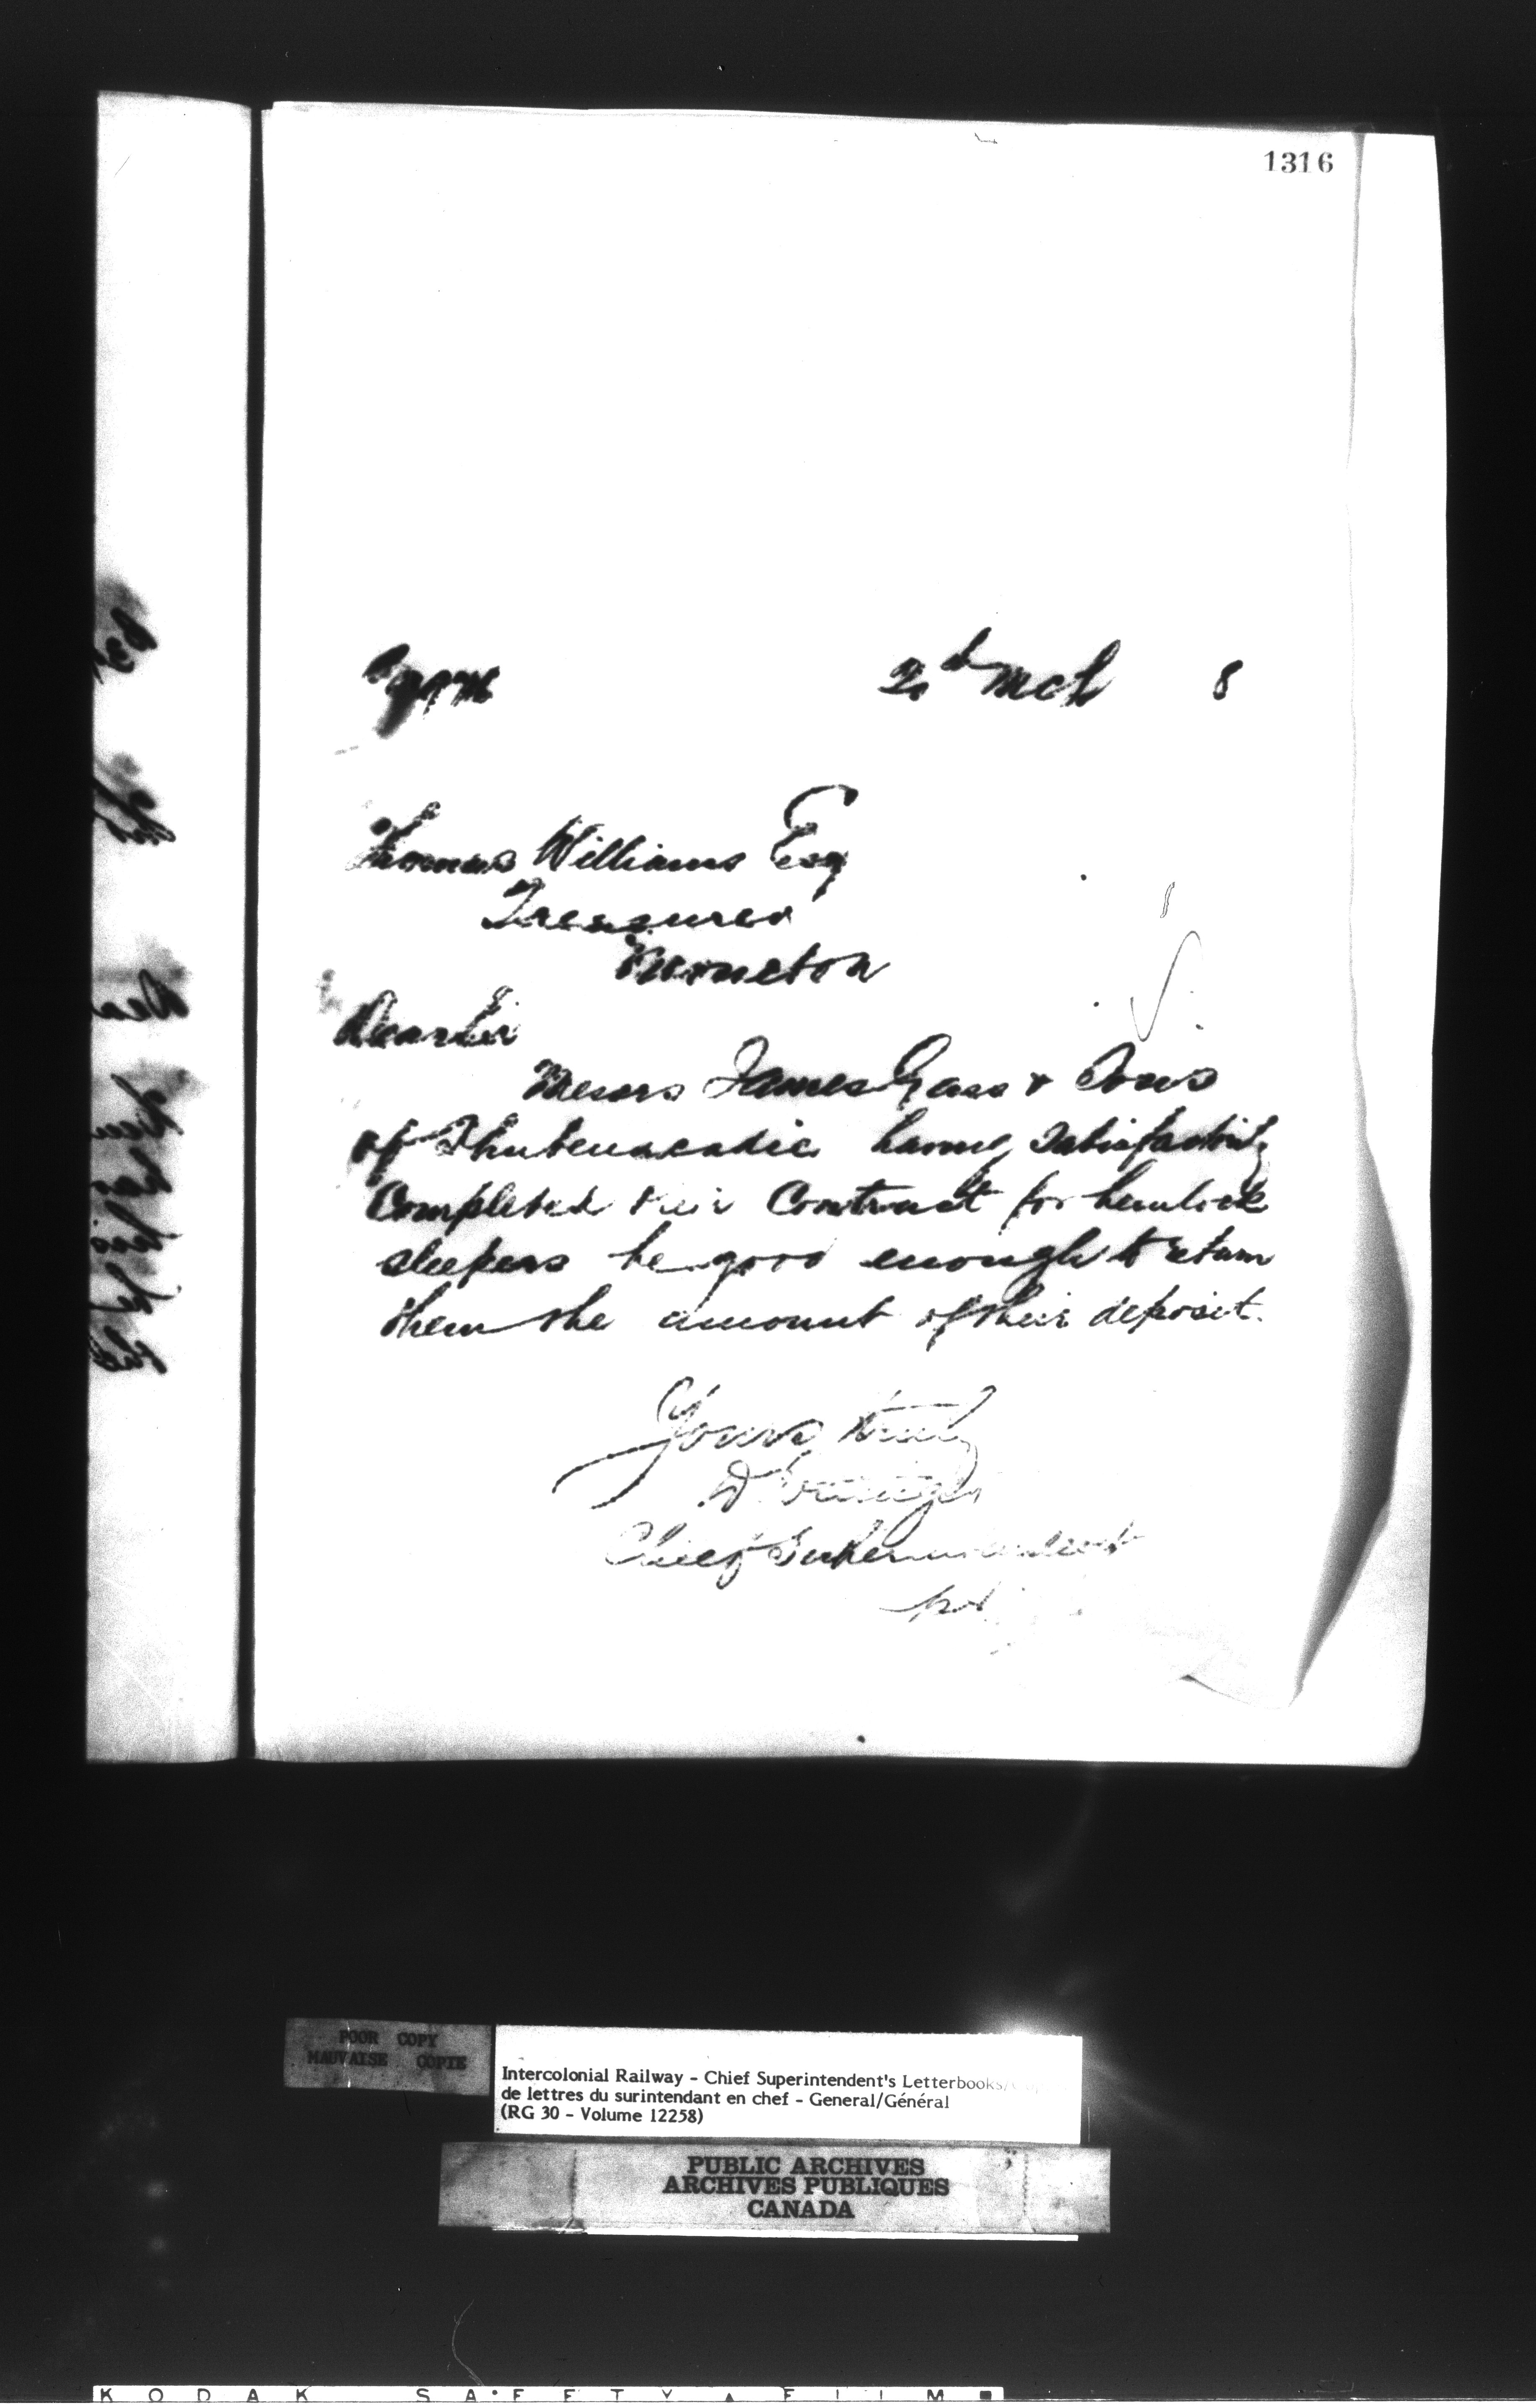 1316
2nd Mch 8
Thomas Williams Esq
Treasurer
Moncton
Dear Sir
Messrs James Gass & Sons
of Shubenacadie having satisfactorily
Completed their Contract for hemlock
sleepers be good enough to return
them the amount of their deposit.
Yours truly
D Pottinger
Chief Superintendent
POOR COPY
MAUVAISE COPIE
Intercolonial Railway - Chief Superintendent's Letterbooks/
de lettres du surintendant en chef - General/Général
(RG 30 - Volume 12258)
PUBLIC ARCHIVES
ARCHIVES PUBLIQUES
CANADA
KODAK SAFETY FILM